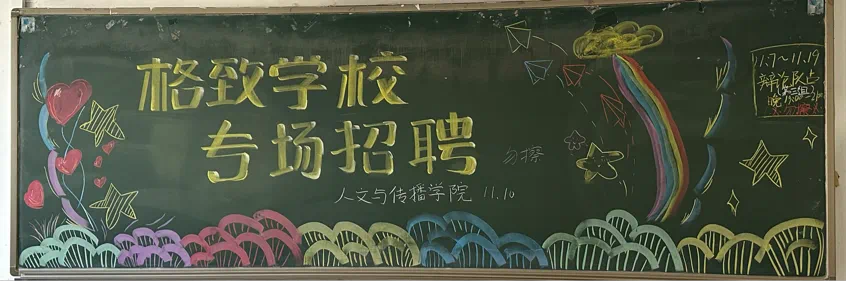 格致学校
专场招聘
勿擦
人文与传播学院 11.10
11.7~11.19